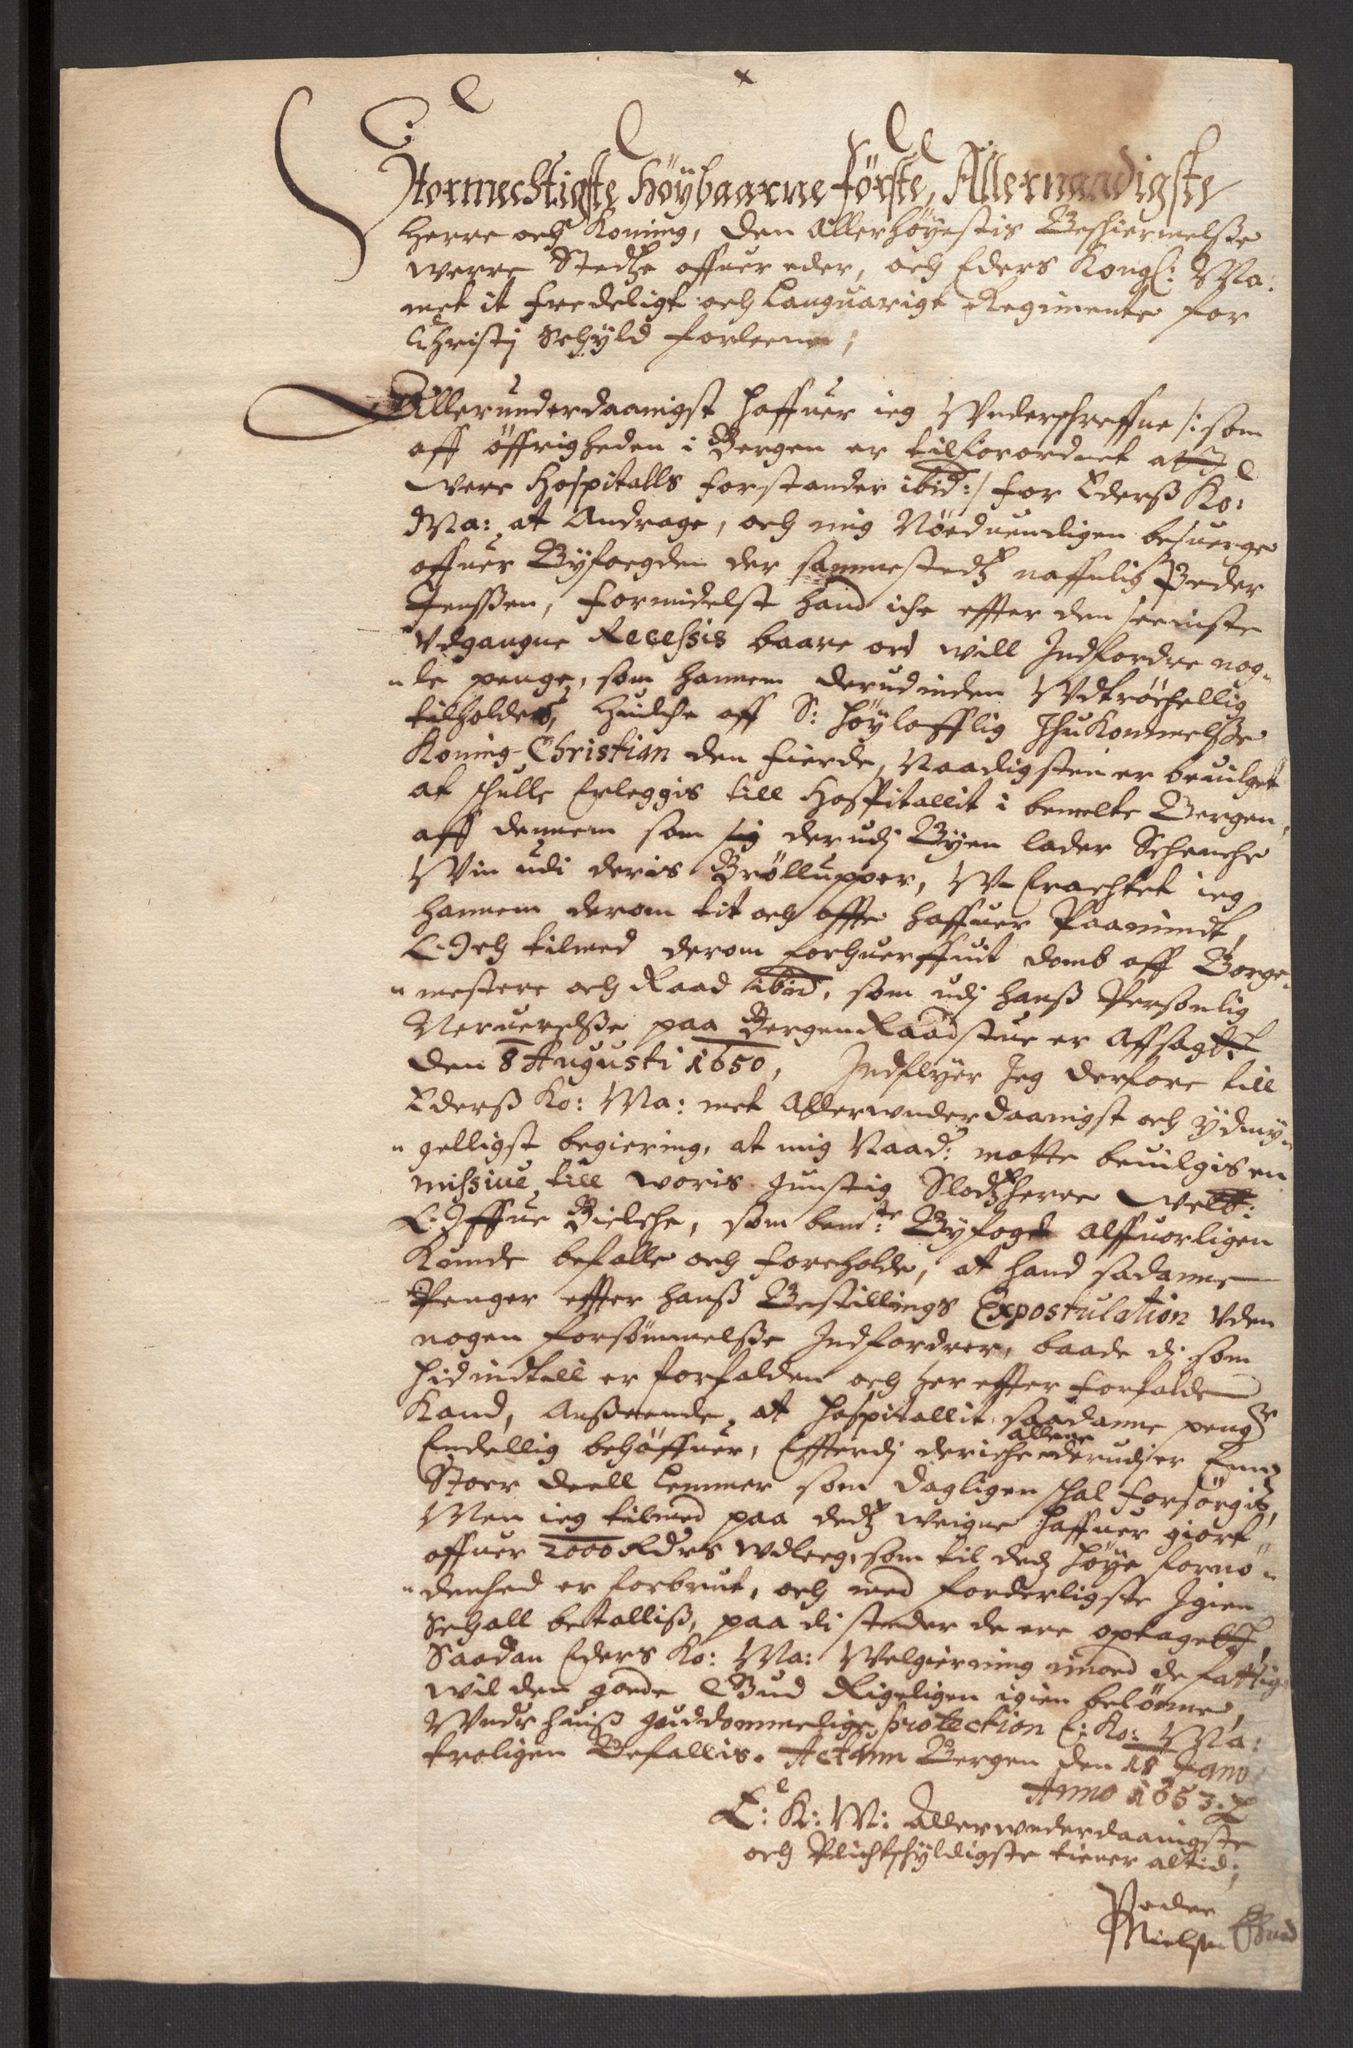 Stormechtigste Høybaarne Første, Allernaadigste
Herre och Koning, den Allerhøyestis Beschiermelsze
werre Stedtze offuer eder, och Eders Kongl: Ma:
met it fredeligt och Languarigt Regimente for
Christj Schyld forleene;
Allerunderdaanigst haffuer ieg Underschreffne /: som
aff øffrigheden i Bergen er tilforordnet at
were Hospitalls forstander ibid: :/ for Ederß Ko:
Ma: at Andrage, och mig Nøeduendigen besuerge
offuer Byfoegden der sammestedtz naffnlig Peder
Jenssen, formidelst hand iche effter den seeniste
Udgangne Recessis baare ord will Indfordre nog-
le penge, som hannem derudinden Udtröchellig
tilholdes, huilche aff S: høylofflig Ihukommelsze
Koning Christian den fierde, Naadigsten er beuilget
at schulle Erleggis till Hospitallit i bemelte Bergen,
aff dennem som sig derudj Byen lader Schenche
Win udi deris Brøllupper, W-Erachtet ieg
hannem derom tit och offte haffuer Paamindt,
Och tilmed derom forhuerffuit domb aff Borge-
mestere och Raad ibid, som udj hanß Personlig
Neruerelsze paa Bergen Raadstue er Affsagt
den 8 Augusti 1650, Indflyer Jeg derfore till
Ederß Ko: Ma: met Allerwnderdaanigst och ydmy-
gelligst begiering, at mig Naad: motte beuilgis en
missiue till woris gunstig Slodtzherre Welb:
Offue Bielche, som bemte: Byfoget alffuorligen
Kunde befalle och foreholde, at hand sadanne
Penger effter hanß Bestillings Expostulation uden
nogen forsømmelsze Indfordrer, baade di som
hidindtill er forfalden och her effter forfalde
Kand, Ansseende at hospitallit saadanne penge
Endellig behøffuer, Effterdj der iche allene derudj er Enn
Stoer deell Lemmer som dagligen schal forsørgis,
Men ieg tilmed paa dedtz weigne haffuer giort
offuer 2000 Rdrs wdleeg, som til dedtz høye fornø-
denhed er forbrut, och med forderligste Igien
Schall betalliß, paa di steder de ere optaget,
Saadan Eders Ko: Ma: Welgierning imod de fattige
wil den goede Gud Rigeligen igien belønne,
Under huiß guddommelige protection E: Ko: Ma:
troligen Befallis. Actum Bergen den 18 Janv
Anno 1653.
E: K: M: Allerwnderdaanigste
och Plichtschyldigste tiener altid;
Peder
Nielsen